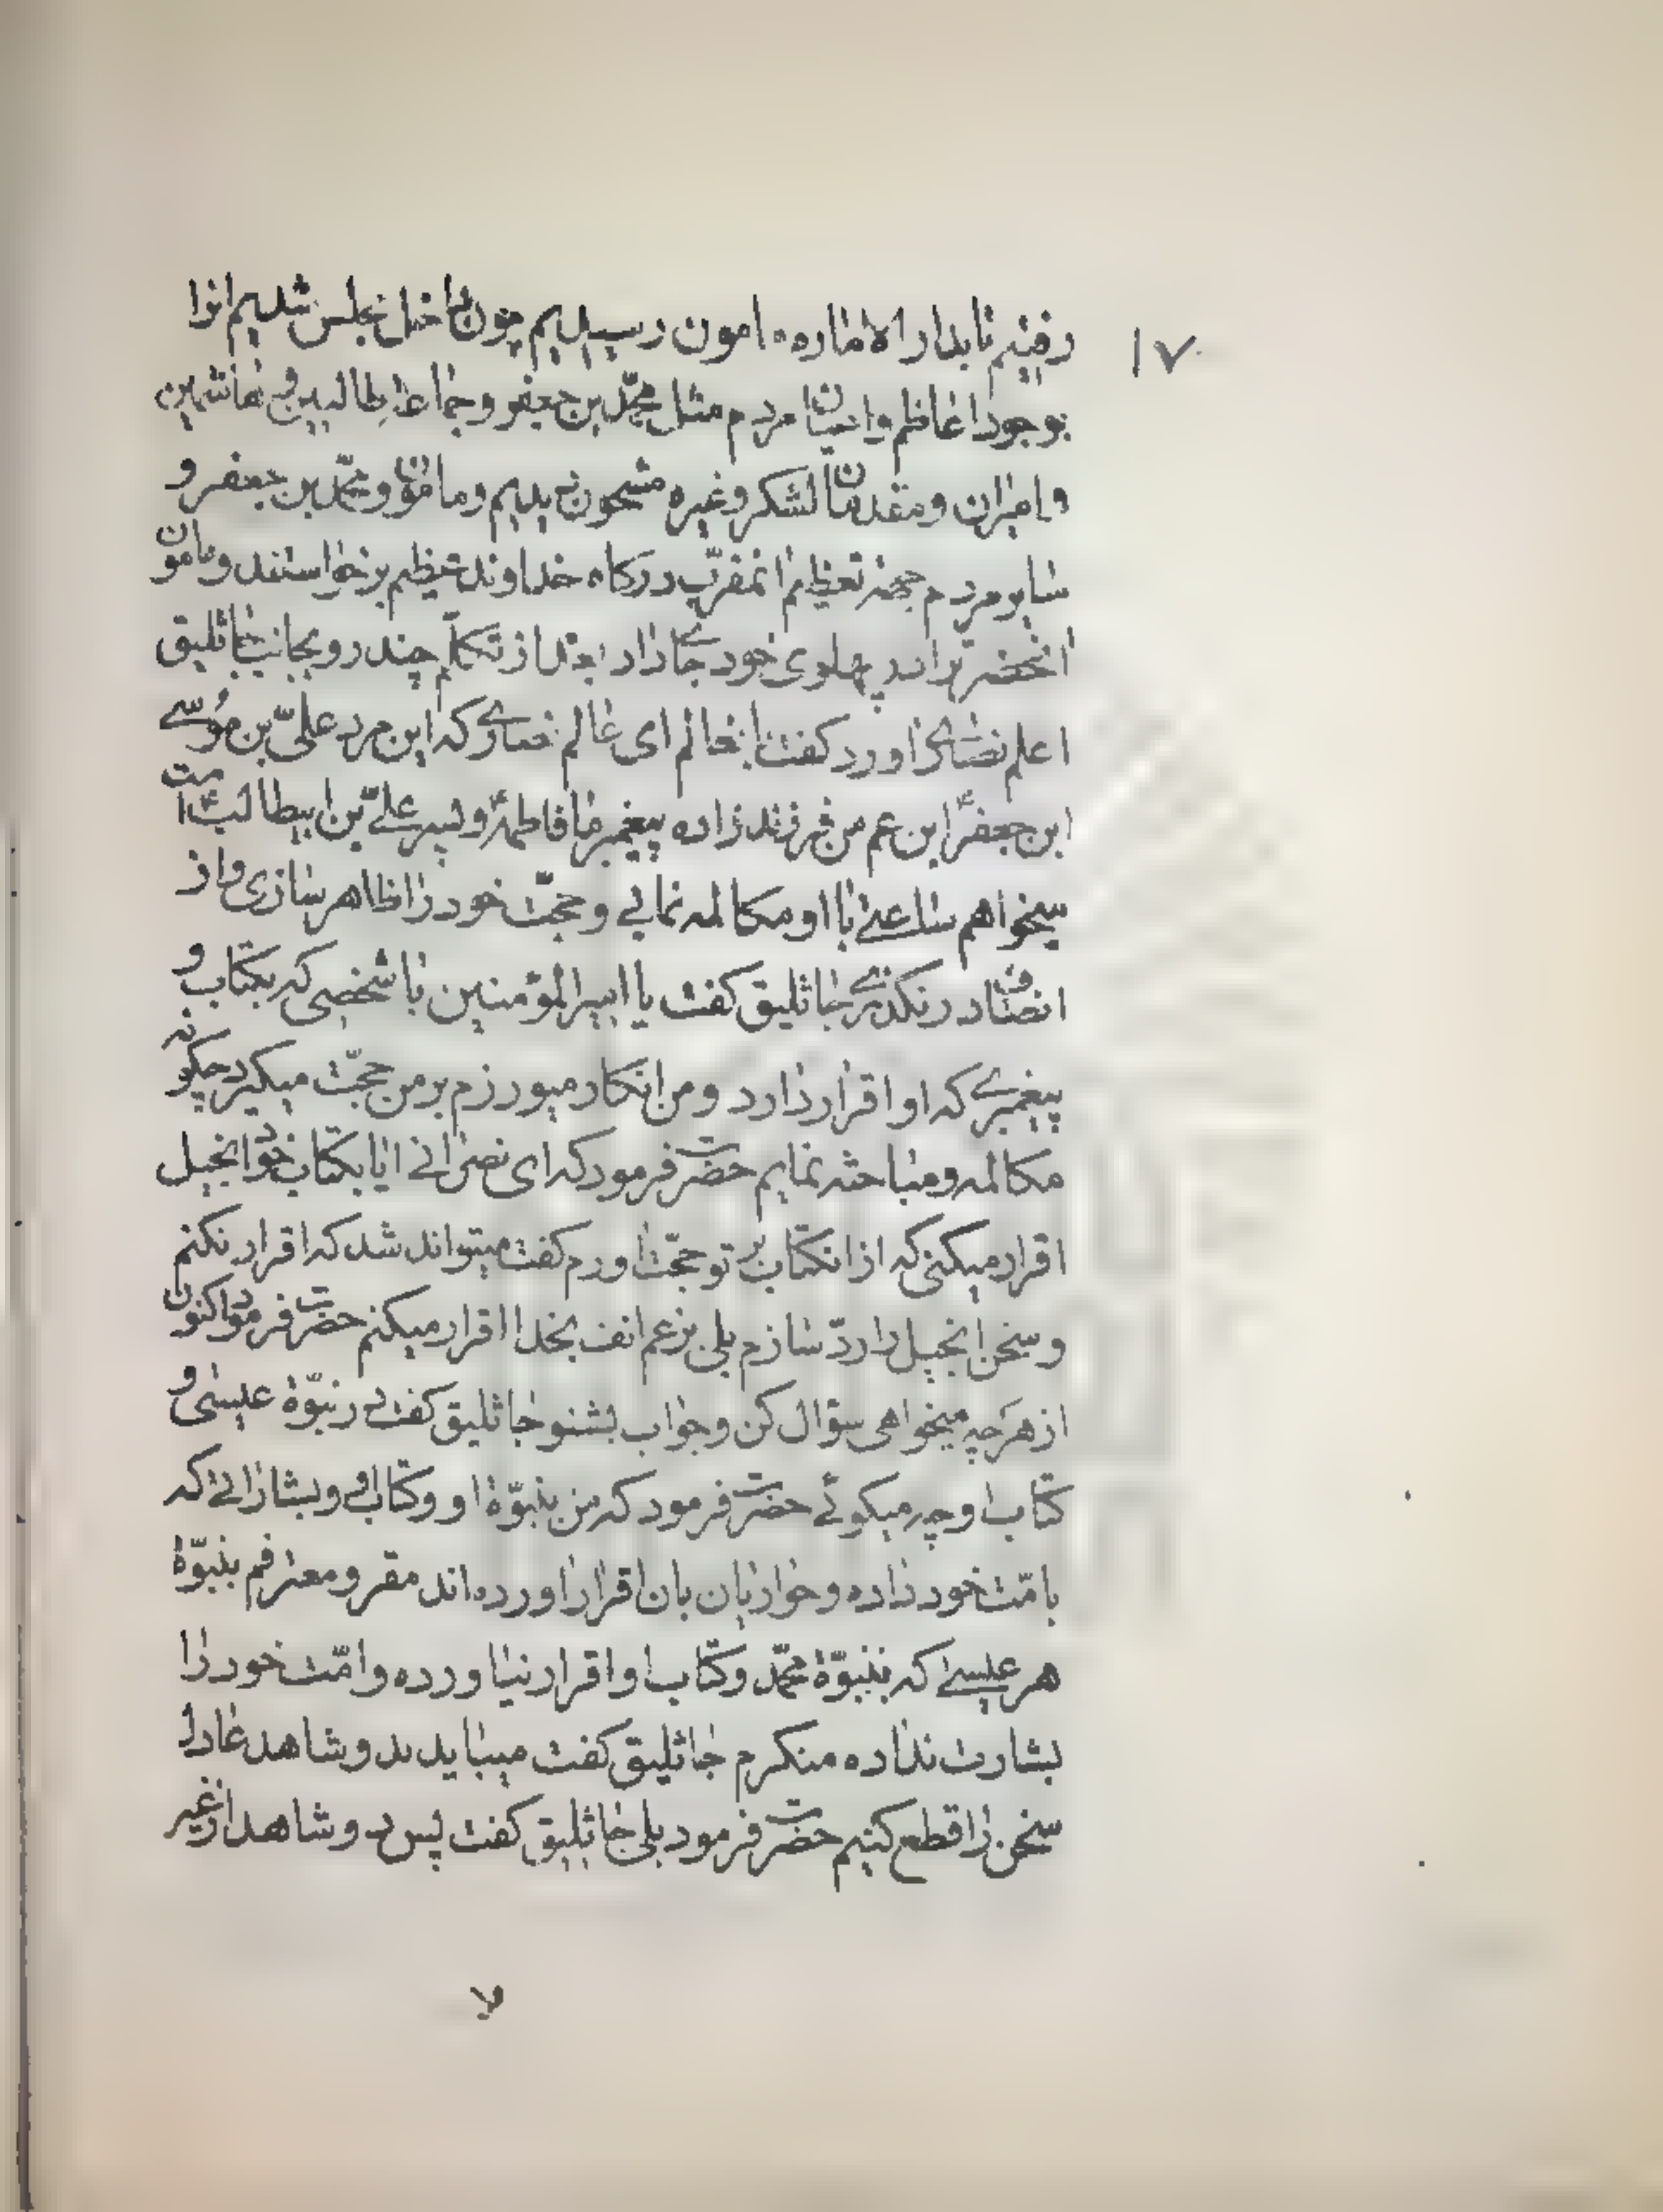 ۱۷
رفتیم تا بدار الاماره مامون رسیدیم چون داخل مجلس شدیم انرا
بوجود اعاظم واعیان مردم مثل محمّد بن جعفر وجماعة طالبین و هاشمین
و امیران ومقدمان لشکر وغیره مشحون دیدیم ومامون ومحمّد بن جعفر و
سایر مردم جهة تعظیم انمقرّب درکاه خداوند عظیم برخواستند ومامون
انحضرترا در پهلوی خود جای داد بعد از تکلّم چند رو بجانب جاثلیق
اعلم نصاری اورد کفت ای عالم نصاری که این مرد علیّ بن موسی
ابن جعفر ابن عم من فرزند زاده پیغمبر ما فاطمه و پسر علیّ بن ابیطالب است
میخواهم ساعتی با او مکالمه نمایی وحجّت خود را ظاهر سازی واز
انصاف در نکذری جاثلیق کفت یا امیر المؤمنین با شخصی که بکتاب و
پیغمبری که او اقرار دارد ومن انکار میورزم بر من حجّت میکیرد چکونه
مکالمه ومباحثه نمایم حضرت فرمود که ای نصرانی ایا بکتاب خود انجیل
اقرار میکنی که از انکتاب بر تو حجّت اورم کفت میتواند شد که اقرار نکنم
وسخن انجیل را ردّ سازم بلی برغم انف بخدا اقرار میکنم حضرت فرمود اکنون
از هرچه میخواهی سؤال کن وجواب بشنو جاثلیق کفت در نبوّة عیسی و
کتاب او چه میکوئی حضرت فرمود که من بنبوّة او وکتاب او وبشارتی که
بامّت خود داده وحواریان بان اقرار اورده اند مقر ومعترفم بنبوّة
هر عیسی که بنبوّة محمّد وکتاب او اقرار نیاورده وامّت خود را
بشارت نداده منکرم جاثلیق کفت میباید بدو شاهد عادل
سخن را قطع کنیم حضرت فرمود بلی جاثلیق کفت پس دو شاهد از غیر